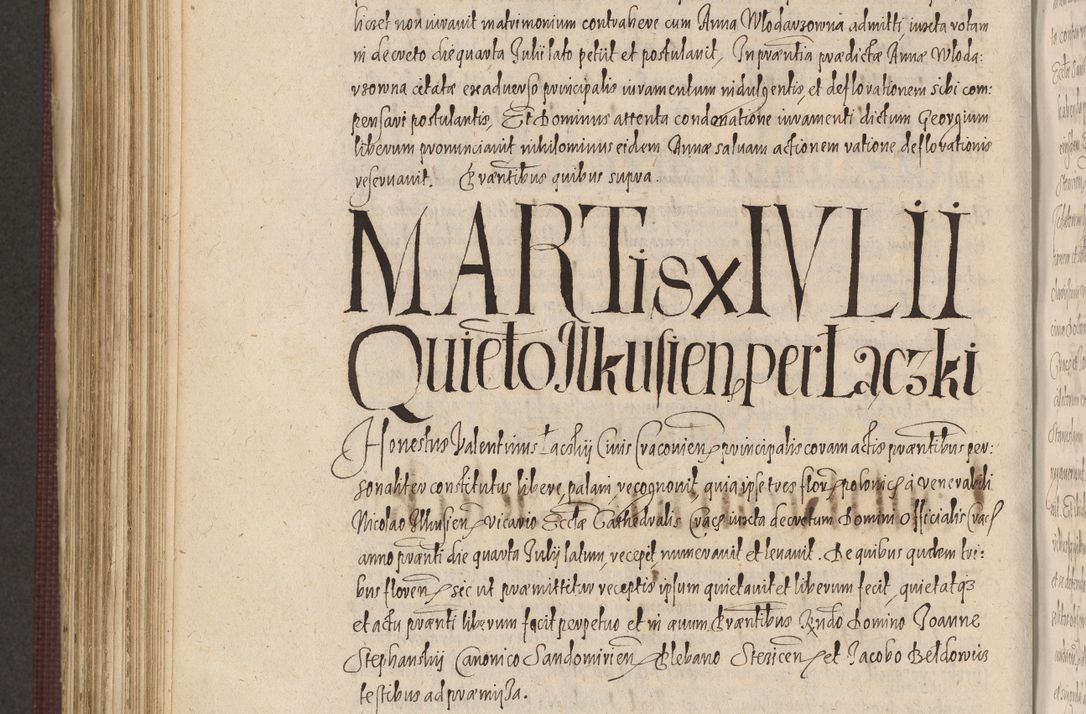 liceret non iuravit matrimonium contrahere cum Anna Wlodarzowna admitti, iuxta votam
in decreto die quarta Julii lato petiit et postulavit, In præntia prædictæ Annæ Wloda:
rzowna citatæ ex adverso principalis iuramentum indulgentis, et deflorationem sibi com:
pensari postulantis, Et Dominus attenta condonatione iuramenti dictum Georgium
liberum pronunciavit nihilominus eidem Annæ salvam actionem ratione deflorationis
reservavit. Præntibus quibus supra.
MARTis X IVLII
Quieto Ilkusien per Łączki
Honestus Valentinus Łacskij Civis Cracovien principalis coram actis præntibus per:
sonaliter constitutus libere, palam recognovit quia ipse tres flor polonic à venerabili
Nicolao Ilkusien vicario Ecclæ Cathedralis Crac iuxta decretum Domini Officialis Crac
anno prænti die quarta Julij latum, recepit, numeravit et levavit. De quibus quidem tri:
bus floren sic ut præmittitur receptis ipsum quietavit et liberum fecit, quietatq3
et actu prænti liberum facit perpetuo et in ævum, Præntibus Rndo Domino Joanne
Stephanskij Canonico Sandomirien Plebano Stericen et Jacobo Beldowis
testibus ad præmissa.